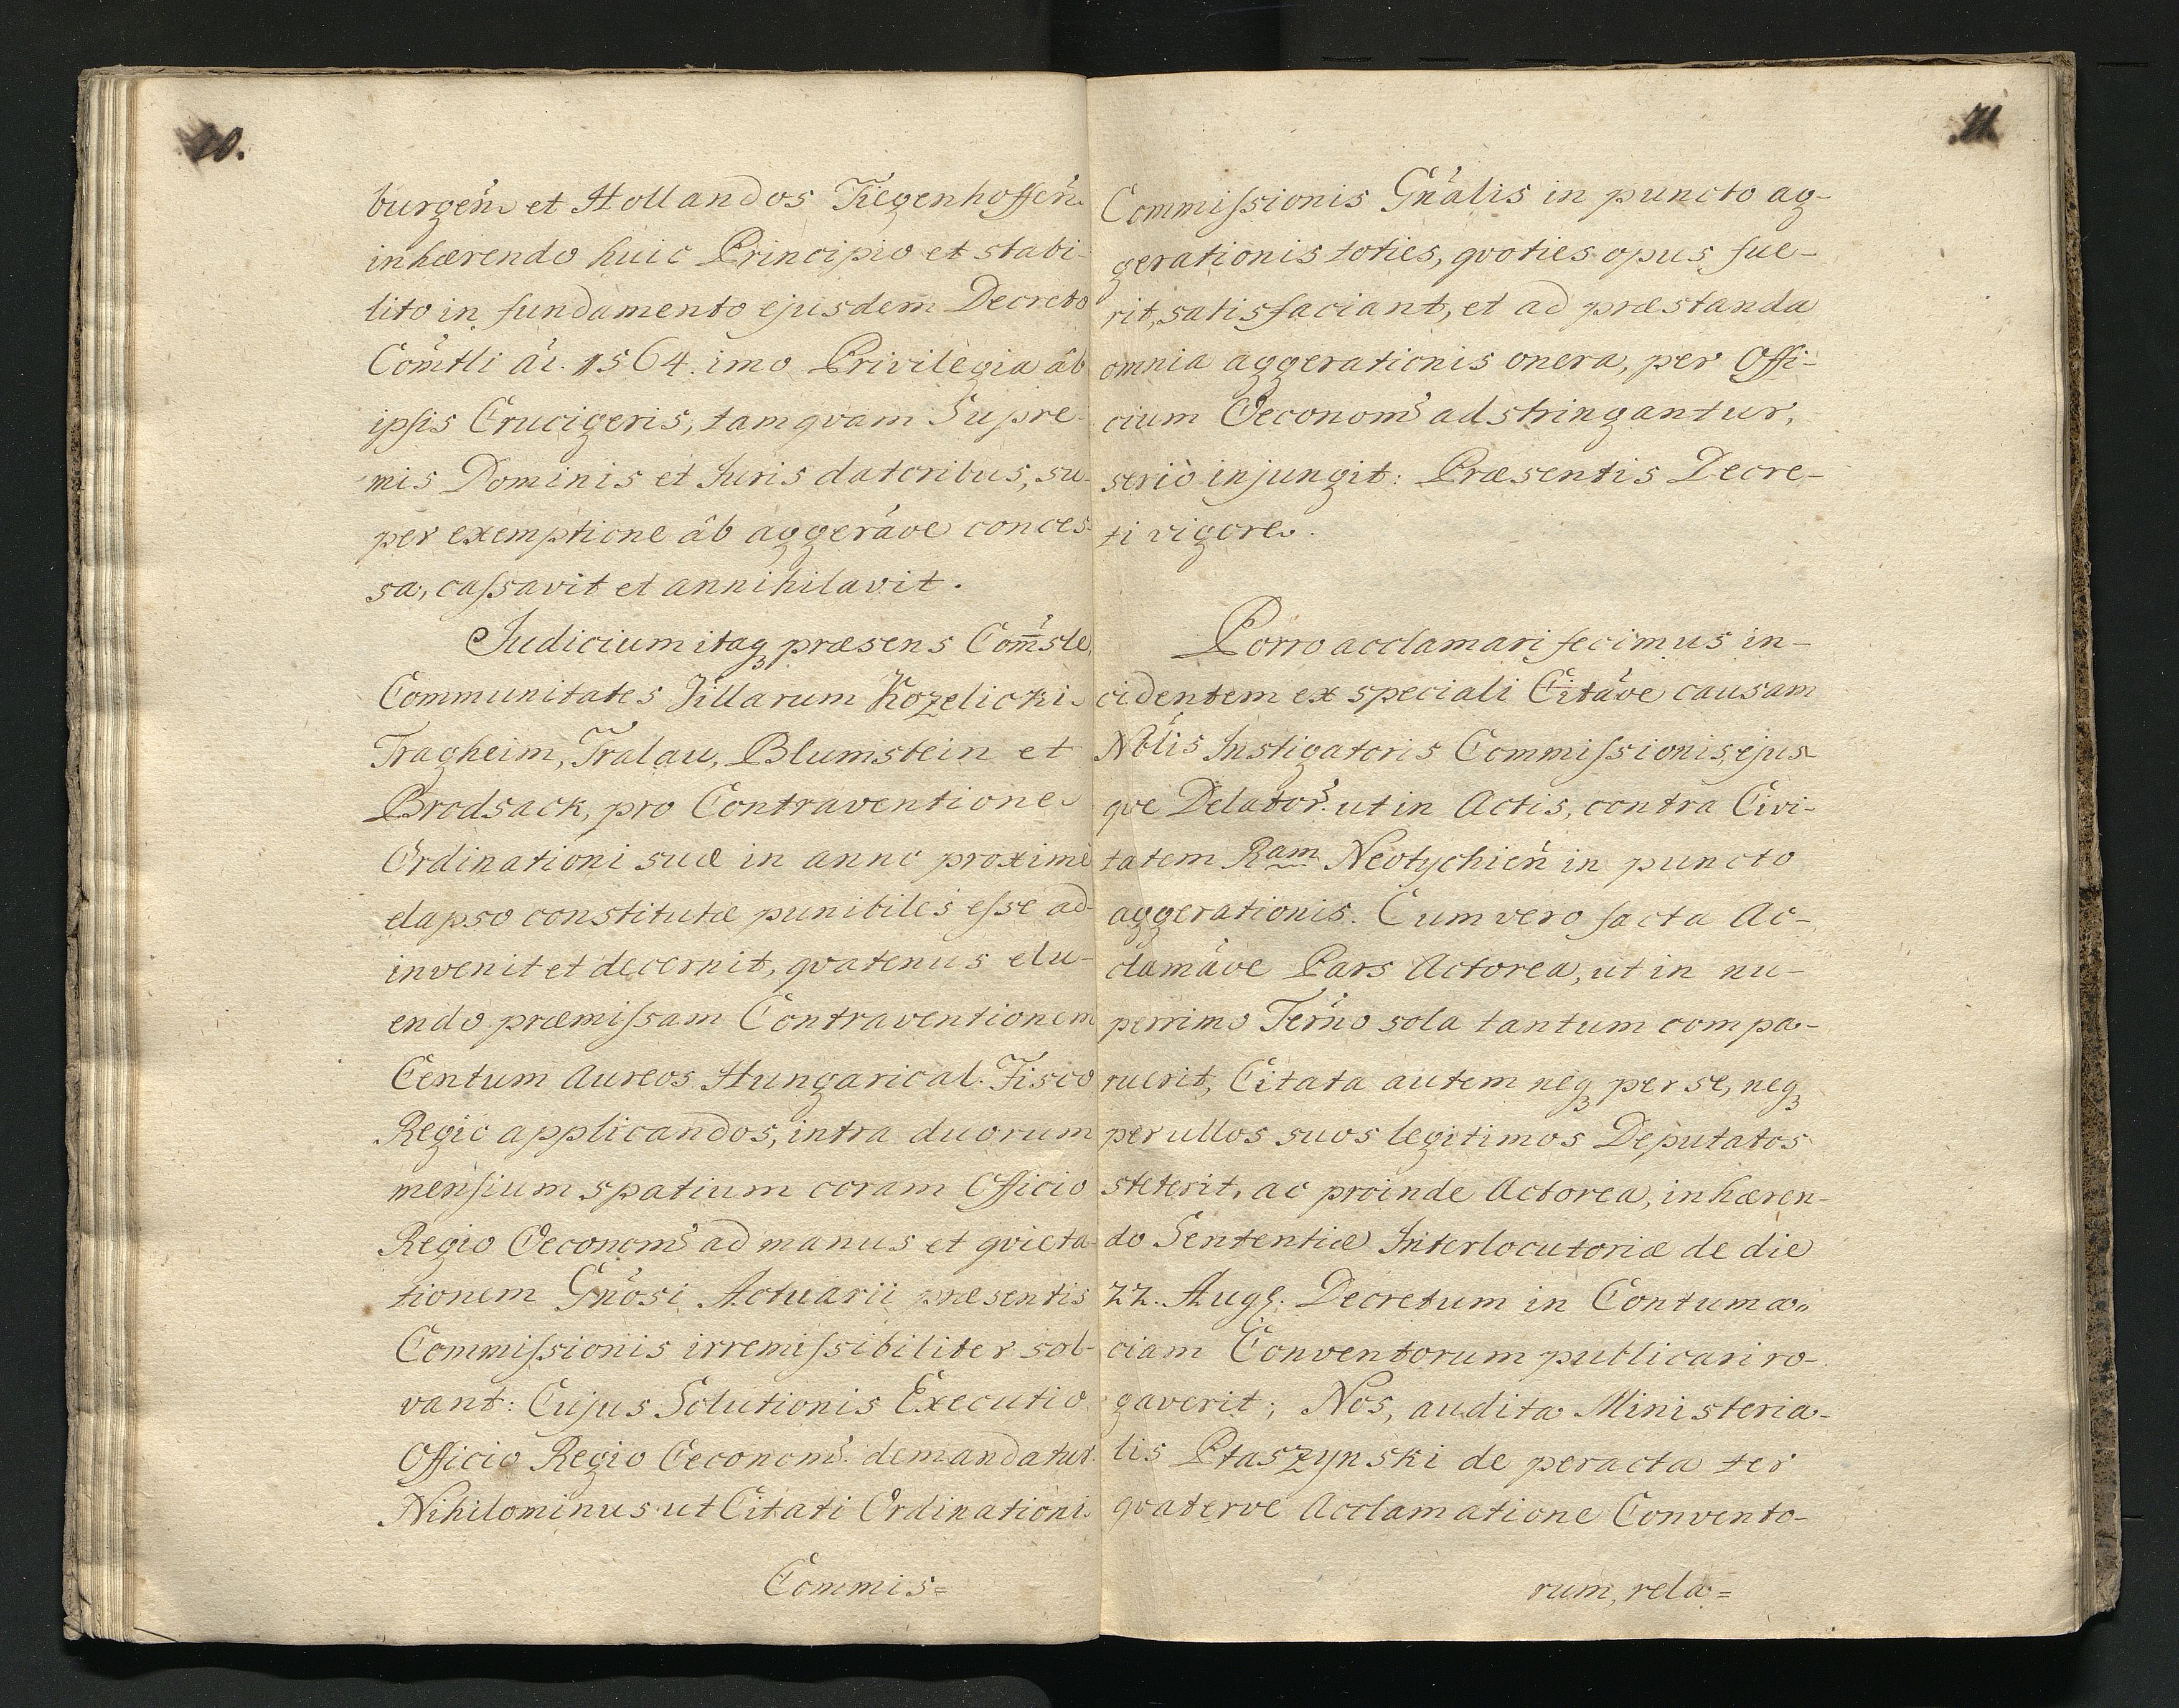 burgen̄ et Hollandos Tiegenhoffen̄
inhærendo huic Principio et stabi-
lito in fundamento ejusdem Decreto
Com̄tli ai. 1564. imo Privilegia âb
ipsis Crucigeris, tamqvam Supre-
mis Dominis et Juris datoribus, su-
per exemptione âb aggerãoe conces-
sa, cassavit et annihilavit.
Judicium itaqꝫ præsens Com̄sle,
Communitates Villarum Kozelicki
Tragheim, Tralau, Blumstein et
Brodsack, pro Contraventione
Ordinationi suæ in anno proximè
elapso constitutæ punibiles esse ad-
invenit et decernit, qvatenus elu-
endo præmissam Contraventionem
Centum Aureos Hungarical. Fisco
Regio applicandos, intra duorum
mensium spatium coram Officio
Regio Oeconom̃ ad manus et qvieta-
tionem Gn̄osi Actuarii præsentis
Commissionis irremissibiliter sol-
vant: Cujus Solutionis Executio
Officio Regio Oeconom̃. demandatur.
Nihilominus ut Citati Ordinationi
Commis=
Commissionis Gn̄alis in puncto ag-
gerationis toties, qvoties opus fue-
rit, satisfaciant, et ad præstanda
omnia aggerationis onera, per Offi-
cium Oeconom̃ adstringantur,
seriò injungit: Præsentis Decre-
ti vigore.
Porro acclamari fecimus in-
cidentem ex speciali Citãoe causam
Nb̄lis Instigatoris Commissionis, ejus-
qve Delator̃. ut in Actis, contra Civi-
tatem Ram Neotychien̄ in puncto
aggerationis. Cum vero facta Ac-
clamãoe Pars Actorea, ut in nu-
perrimo Ter̄no sola tantum compa-
ruerit, Citata autem neqꝫ per se, neqꝫ
per ullos suos legitimos Deputatos
steterit, ac proinde Actorea, inhæren-
do Sententiæ Interlocutoriæ de die
22. Augỹ. Decretum in Contuma-
ciam Conventorum publicari ro-
gaverit; Nos, audita Ministeria-
lis Ptaszynski de peracta ter
qvaterve Acclamatione Convento-
rum, rela=